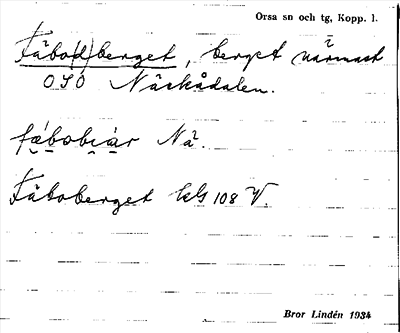 Orsa sn och tg, Kopp. l.
Fäbod(/)berget, berget närmast
OSO Näckådalen.
fǽbobiär Nä.
Fäboberget kls 108 V.
Bror Lindén 1934